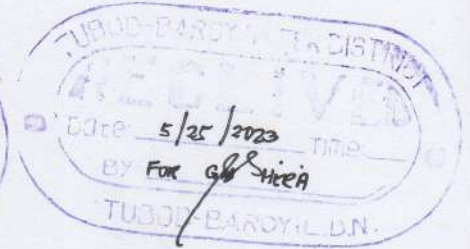 TUBOD-BAROY WATER DISTRICT
RECEIVED
Date 5/25/2023 Time
BY FOR
TUBOD-BAROY, L.D.N.